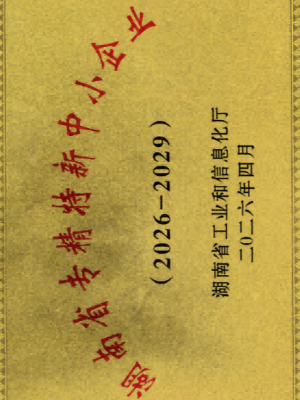 湖南省专精特新中小企业
（2026-2029）
湖南省工业和信息化厅
二〇二六年四月